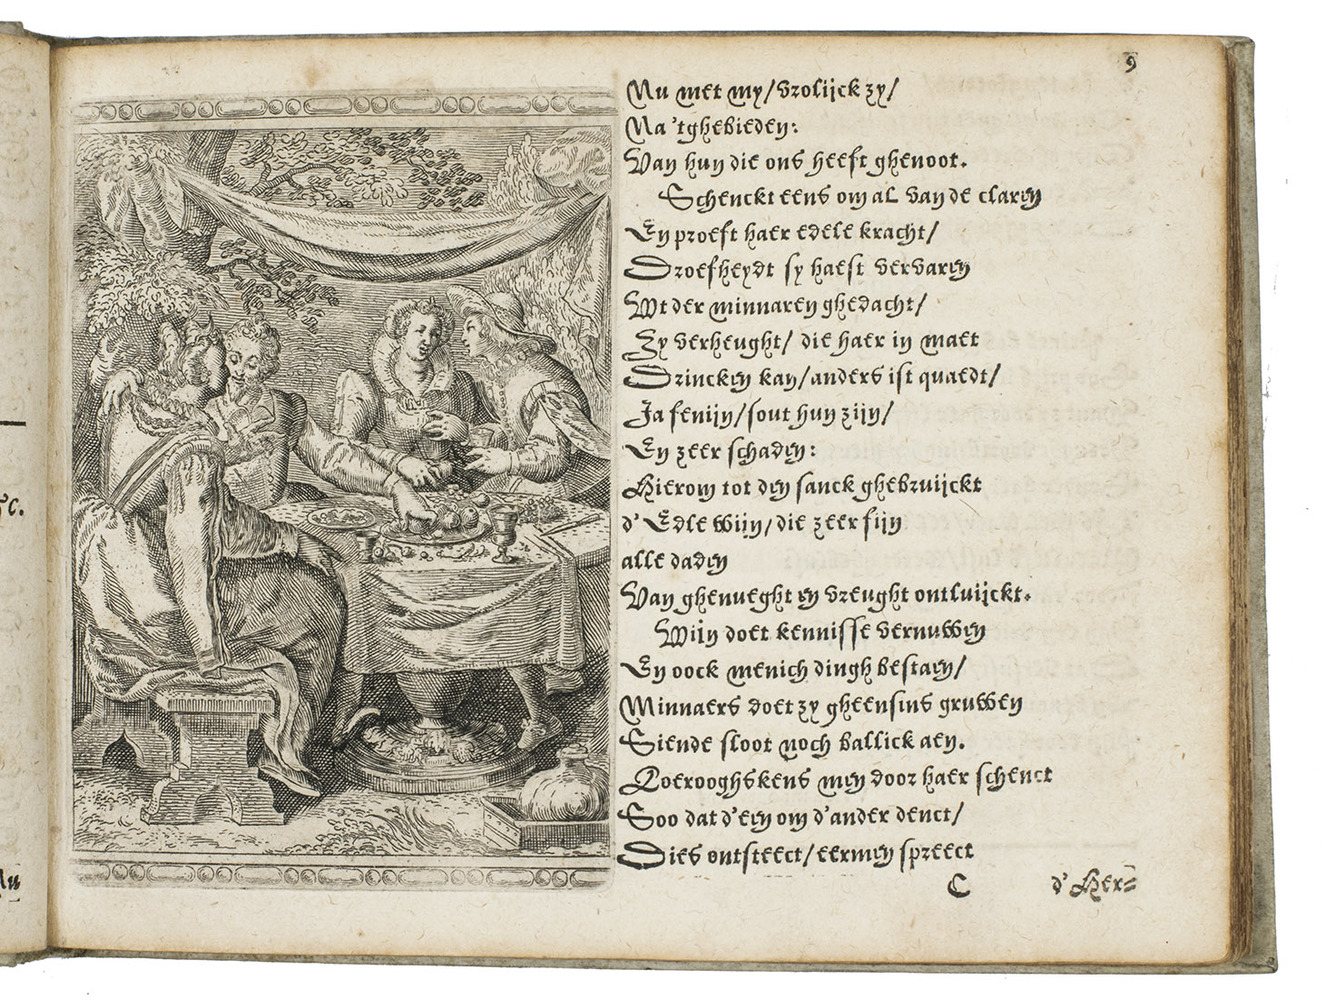 9
ꝛc.
Nu
Nu met my/vrolijck zy/
Na 'tghebieden:
Van hun die ons heeft ghenoot.
Schenckt eens om al van de claren
En proeft haer edele kracht/
Droefheydt sy haest vervaren
Wt der minnaren ghedacht/
Zy verheught/ die haer in maet
Drincken kan/anders ist quaedt/
Ja fenijn/sout hun zijn/
En zeer schaden:
Hierom tot den sanck ghebruijckt
d'Edle wijn/die zeer fijn
alle daden
Van ghenueght en vreught ontluijckt.
Wijn doet kennisse vernuwen
En oock menich dingh bestaen/
Minnaers doet zy gheensins gruwen
Siende sloot noch balck aen.
Loerooghskens men door haer schenct
Soo dat d'een om d'ander denct/
Dies ontsteect/eermen spreect
C d'Her=